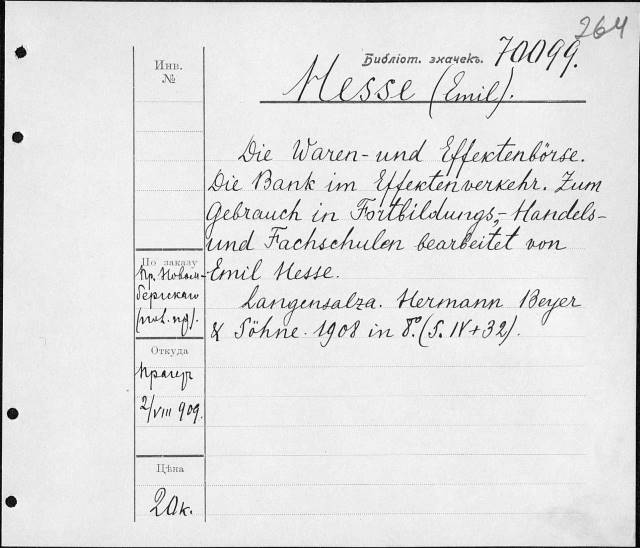 264
Библіот. значекъ. 70099.
Инв.
№
Hesse (Emil).
Die Waren- und Effektenbörse.
Die Bank im Effektenverkehr. Zum
Gebrauch in Fortbildungs-, Handels-
und Fachschulen bearbeitet von
Emil Hesse.
Langensalza. Hermann Beyer
& Söhne. 1908 in 8°. (S. IV + 32).
По заказу
Пр. Новом-
бергскаго
Откуда
Прагеръ
2/VIII 909.
Цѣна
20 к.